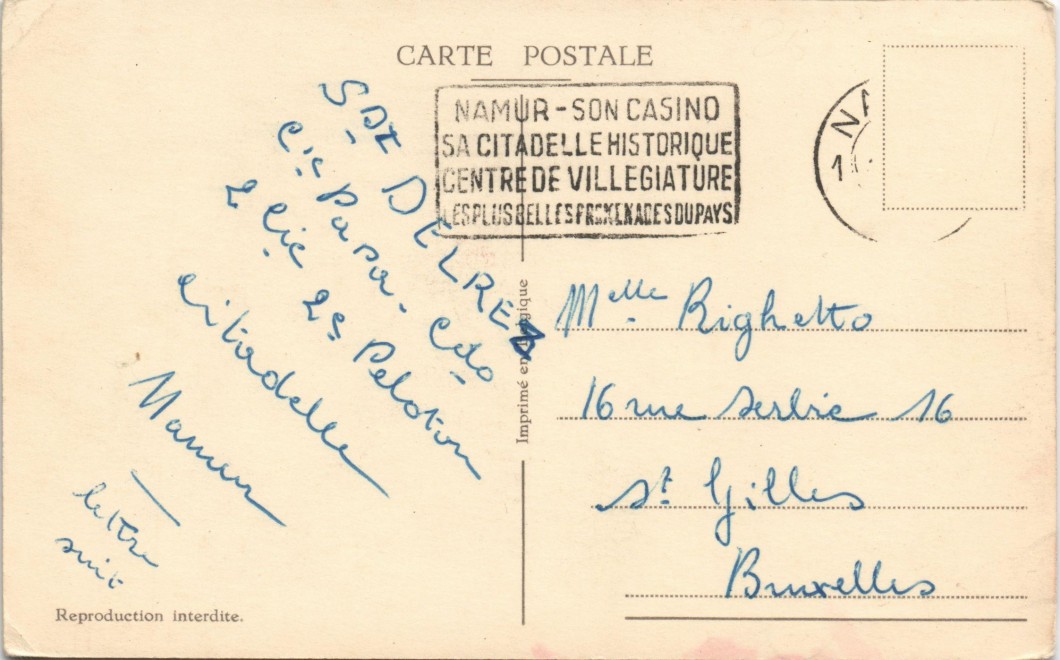 CARTE POSTALE
NAMUR - SON CASINO
SA CITADELLE HISTORIQUE
CENTRE DE VILLEGIATURE
LES PLUS BELLES PROMENADES DU PAYS
NA
1
Sdt DELREZ
Cie Para - Cdo
2 Cie 2e Peloton
Citadelle
Namur
lettre
suit
Imprimé en Belgique
Melle Righetto
16 rue Serbie 16
St Gilles
Bruxelles
Reproduction interdite.